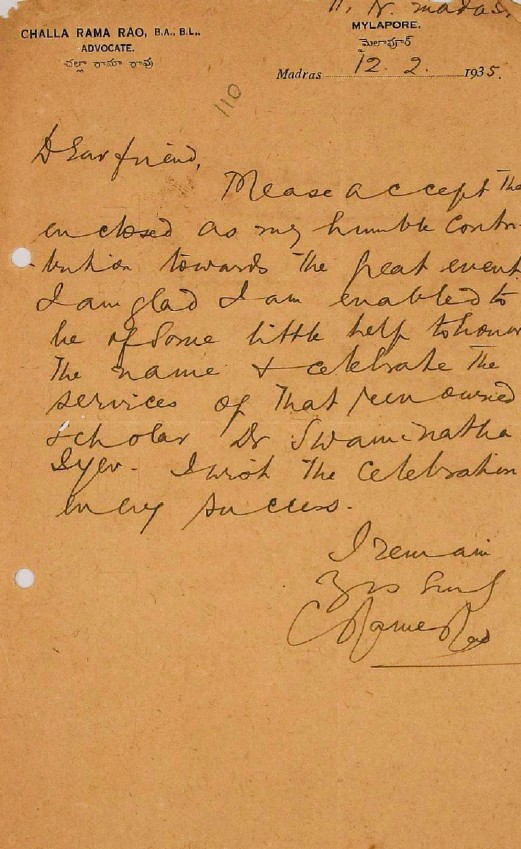 CHALLA RAMA RAO, B.A., B.L.,
ADVOCATE.
చల్లా రామా రావు
N. Mada S
MYLAPORE.
మైలాపూర్
Madras 12. 2. 1935.
110
Dear friend,
Please accept the
enclosed as my humble contri-
-bution towards the great event
I am glad I am enabled to
be of some little help to honour
the name & celebrate the
services of that renowned
scholar Dr Swaminatha
Iyer. I wish the celebration
every success.
I remain
Yrs
C Rama Rao